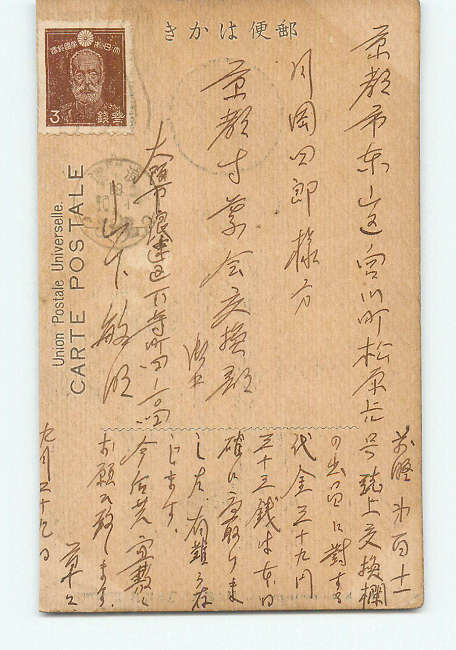 郵便はかき
3
錢
參
Union Postale Universelle.
CARTE POSTALE
京都市東山区宮川町松原上
川岡四郎様方
京都寸葉会交換部
御中
大阪市浪速区
山下敏明
前略 第百十一
号誌上交換欄
の出品に対する
代金三十九円
三十三銭は本日
確に受取りま
した 有難う存
じます。
今后共宜敷く
お願ひ致します。
草々
九月二十九日